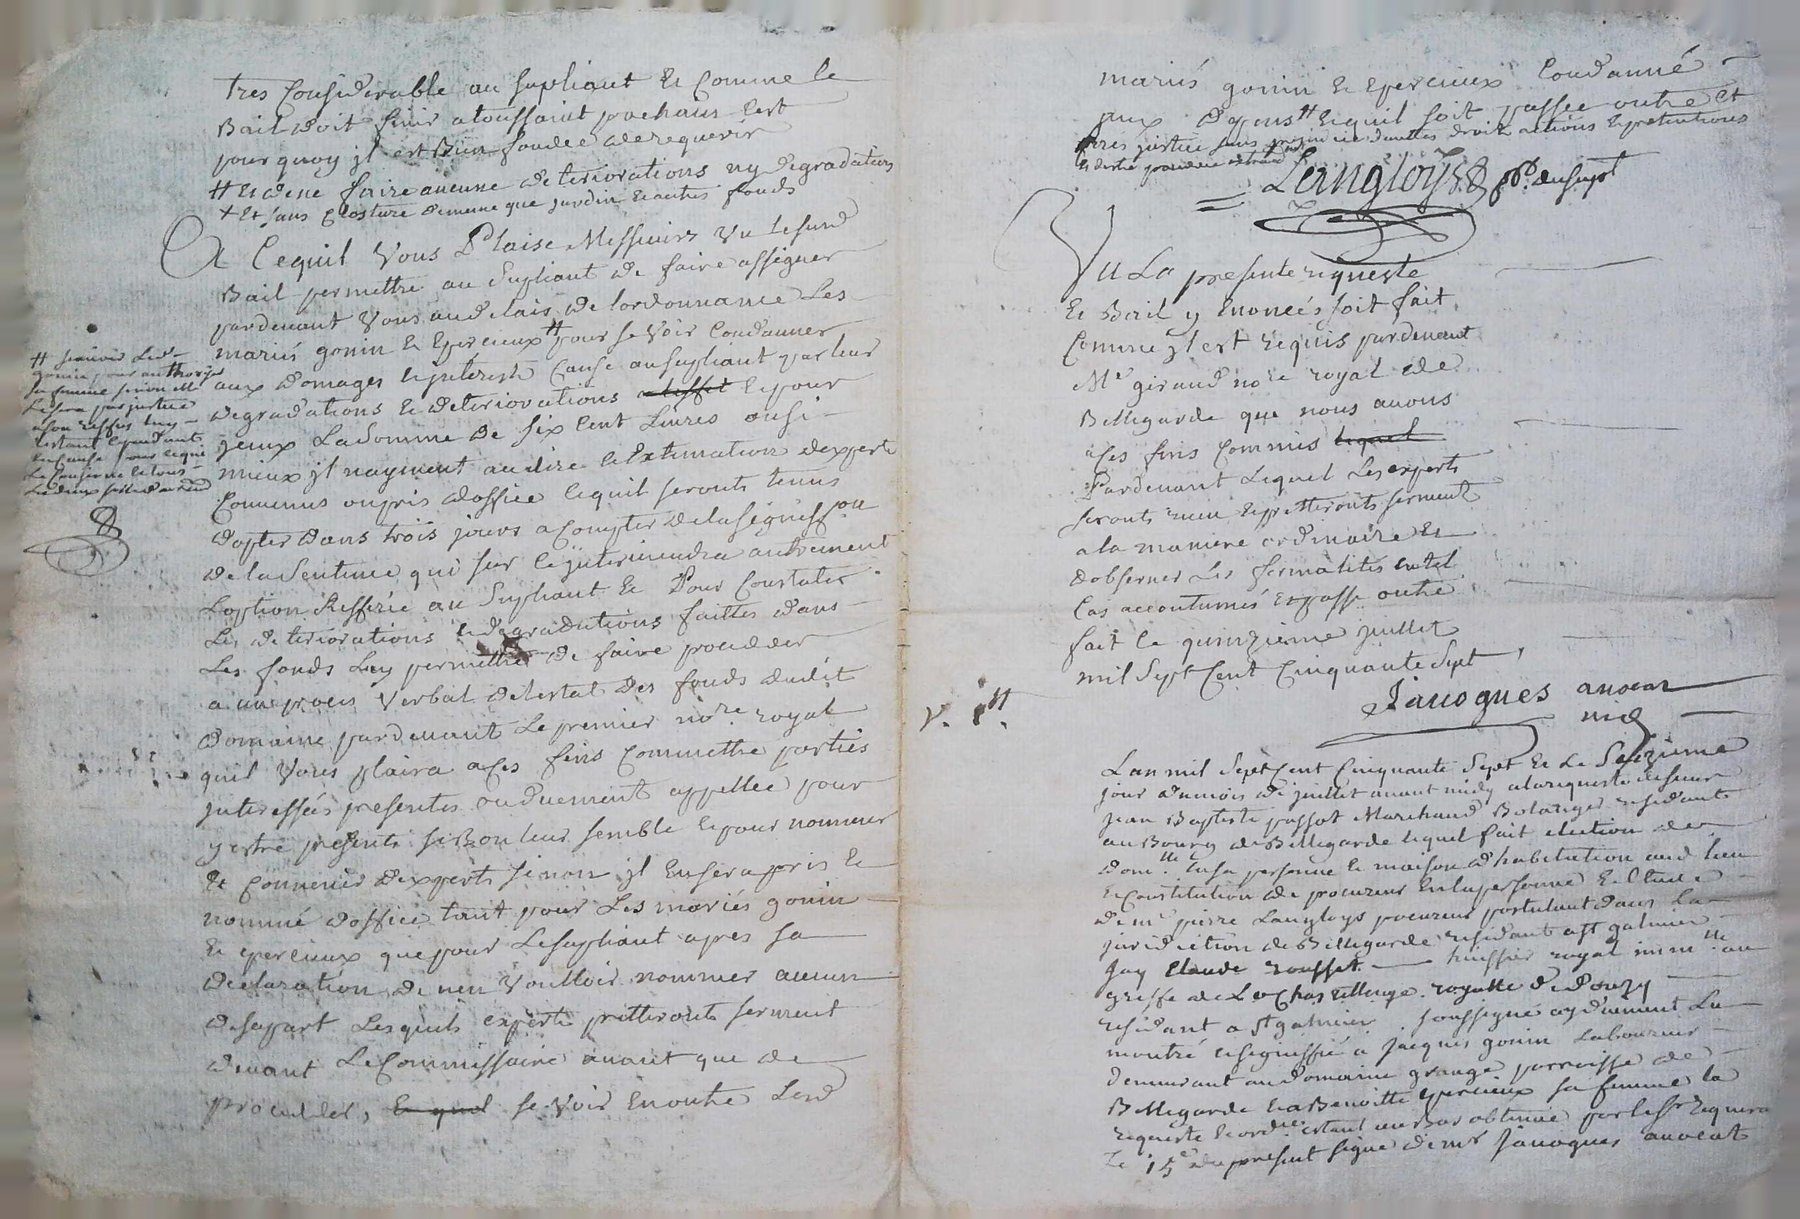 tres Considerable au supliant et Comme le
Bail doit finir a toussaint prochain cest
pourquoy jl est Bien fondée de requerir
# et de ne faire aucune deteriorations ny degradations
+ et sans closture de meme que jardin et autres fonds
A Cequil Vous Plaise Messieurs Vu lesusd
Bail permettre au supliant de faire assigner
pardevant Vous aud elais de lordonnance Les
mariés gonin et epercieux # pour se Voir Condanner
aux domages et interests Cause au supliant par leur
degradations et deteriorations et pour
jeeux La somme de six Cent Livres ou si
mieux jl nayment au dire et Extimation dexperts
Convenus ou pris doffice lequil seronts tenus
dopter dans trois jours a compter de la signiff.on
de la Sentence qui sur ce jnterviendra autrement
Loption Refferée au supliant et Pour Constater
Les deteriorations et degradations faittes dans
Les fonds Luy permettre de faire proceder
a un proces Verbal de lestat des fonds dudit
domaine pardevant Le premier no.re royal
quil Vous plaira a Ces fins Commettre parties
jnteressées presentes ou duement appellée pour
y estre presents si Bon leur semble et pour nommer
et Convenir dexperts sinon jl en sera pris et
nommé doffice tant pour Les mariés gonin
et epercieux que pour Le supliant apres sa
declaration de nen Voulloir nommer aucun
de sa part Lesquels experts pretteronts serment
devant Le Commissaire avant que de
proceder, se Voir en outre Lesd
# sçavoir Led
gonin pour authoriser
sa femme sinon ell
Le sera par justice
mariés gonin et epercieux Condanné
aux depens # et quil soit passée outre et
feres justice sans prejudice dauttes droits actions et pretentions
Langloys pr. du supt
Vu La presente requeste
et Bail y enoncés soit fait
Comme jl est requis pardevant
Me giraud no.re royal de
Bellegarde que nous avons
a Ces fins Commis
Pardevant Lequel Les experts
seronts nceu et pretteronts serment
a la maniere ordinaire et
dobserver Les formalités en tel
Cas accoutumés et passé outre
fait le quinzieme juillet
mil sept Cent Cinquante sept
Javogues avocat
V. #
Lan mil sept Cent Cinquante sept et Le Seizieme
jour du mois de juillet avant midy a la requeste de sieur
jean Baptiste passot Marchand Bolanger residant
au Bourg de Bellegarde lequel fait election de
dom.lle en sa personne et maison dhabitution aud lieu
et Constitution de procureur en la personne et Etude
de me pierre Langloys procureur postulant dans La
juridiction de Bellegarde residant a st galmier
Jay Claude rousset huissier royal imm.lle au
greffe de La Chastellenie royalle de donzy
residant a St galmier soussigne ay duement
montré et signiffié a Jacques gonin Laboureur
demeurant au domaine grange parroisse de
Bellegarde et a Benoitte epercieux sa femme la
requeste et ord.ce estant au Bas obtenue par le sr requera
Le 15e du present signé de mr Javogues avocat